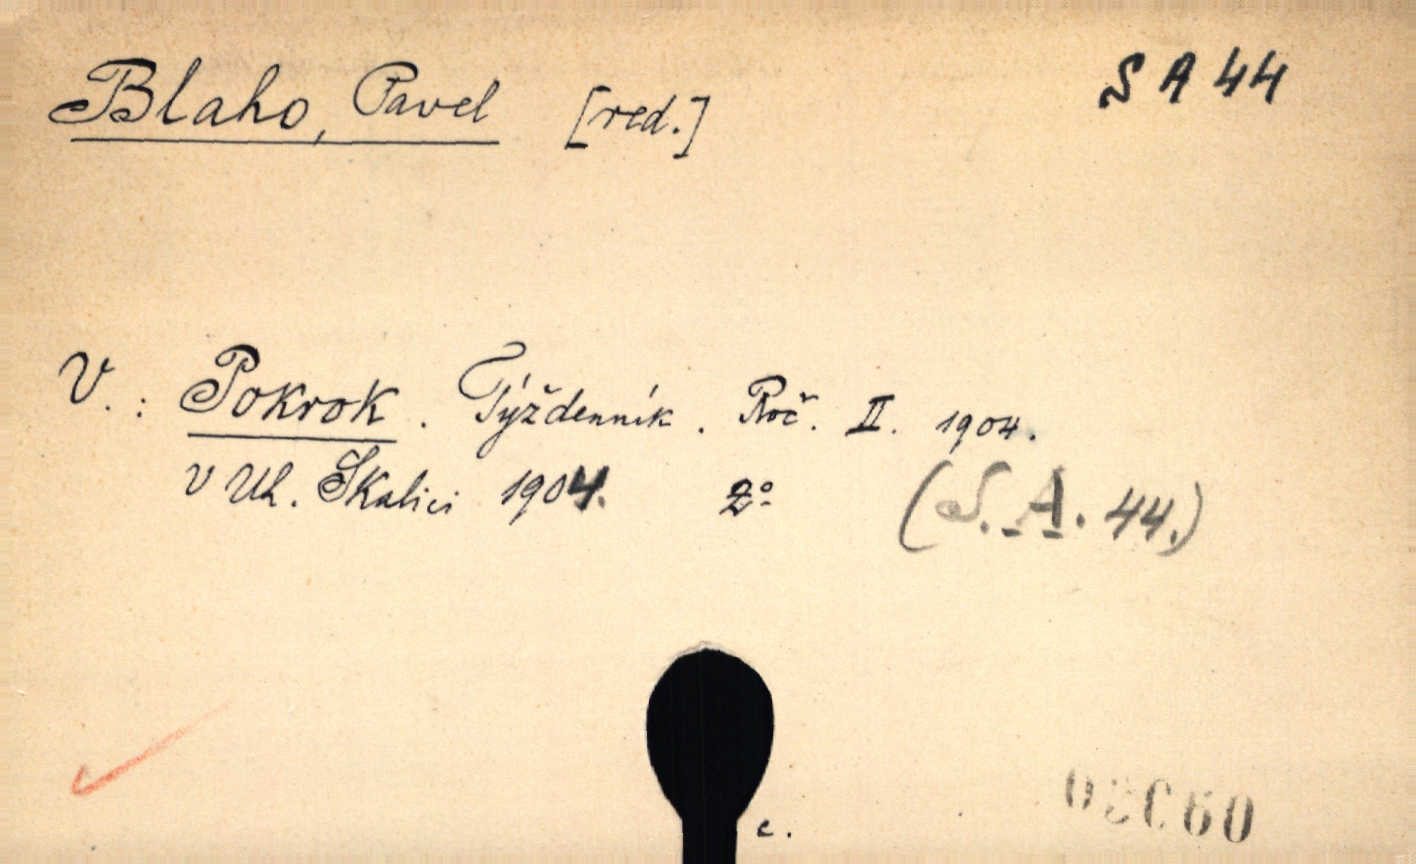 Blaho, Pavel [red.] S A 44
V. : Pokrok. Týždenník. Roč. II. 1904.
v Uh. Skalici 1904. 2° (S. A. 44.)
c.